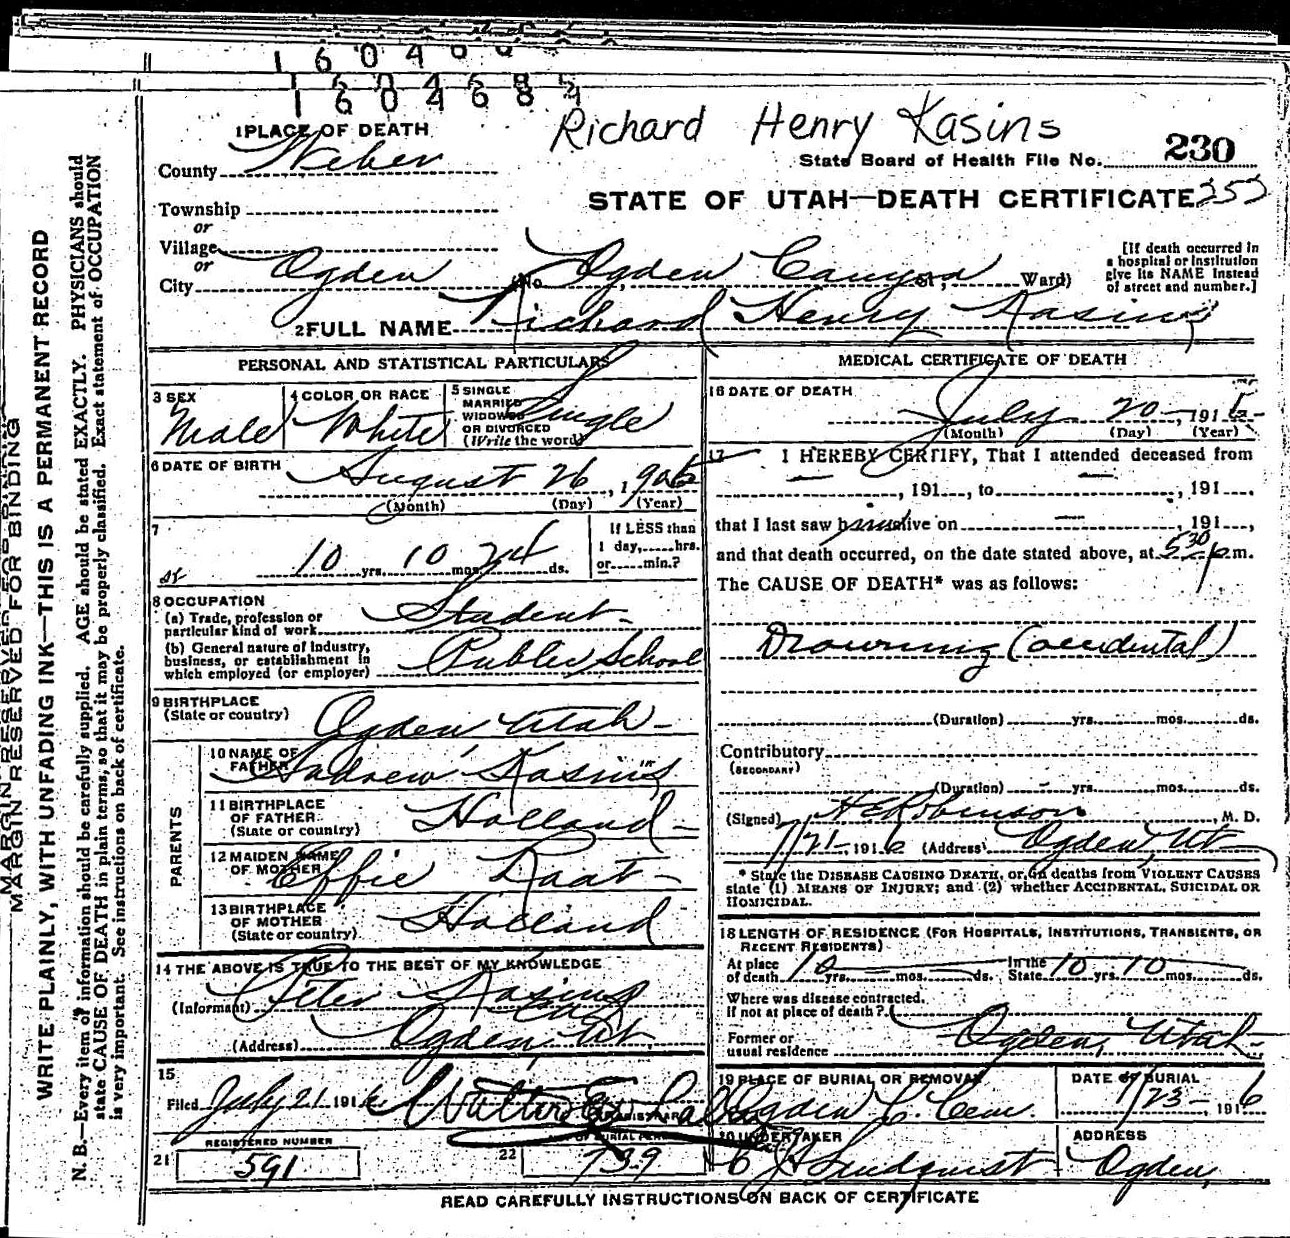 1 6 0 4 6
1 6 0 4 6 8
Richard Henry Kasins
1 PLACE OF DEATH
County Weber
State Board of Health File No. 230
Township
STATE OF UTAH—DEATH CERTIFICATE 252
or
Village
or
City Ogden (No. Ogden Canyon St.; Ward)
[If death occurred in a hospital or institution give its NAME instead of street and number.]
2 FULL NAME Richard Henry Kasius
PERSONAL AND STATISTICAL PARTICULARS
3 SEX Male
4 COLOR OR RACE White
5 SINGLE MARRIED WIDOWED OR DIVORCED (Write the word) Single
6 DATE OF BIRTH August 26, 1905
(Month) (Day) (Year)
7
10 yrs. 10 mos. 24 ds.
If LESS than 1 day, hrs. or min.?
8 OCCUPATION
(a) Trade, profession or particular kind of work Student
(b) General nature of industry, business, or establishment in which employed (or employer) Public School
9 BIRTHPLACE (State or country) Ogden Utah
PARENTS
10 NAME OF FATHER Andrew Kasius
11 BIRTHPLACE OF FATHER (State or country) Holland
12 MAIDEN NAME OF MOTHER Effie Raat
13 BIRTHPLACE OF MOTHER (State or country) Holland
14 THE ABOVE IS TRUE TO THE BEST OF MY KNOWLEDGE
(Informant) Peter Kasius
(Address) Ogden, Ut
15
Filed July 21 1916
REGISTRAR
REGISTERED NUMBER
21 591
22 739
MEDICAL CERTIFICATE OF DEATH
16 DATE OF DEATH
July 20 191
(Month) (Day) (Year)
17 I HEREBY CERTIFY, That I attended deceased from
, 191 , to , 191 ,
that I last saw h alive on , 191 ,
and that death occurred, on the date stated above, at 5 30 p.m.
The CAUSE OF DEATH* was as follows:
Drowning (accidental)
(Duration) yrs. mos. ds.
Contributory
(SECONDARY)
(Duration) yrs. mos. ds.
(Signed) H E Robinson, M. D.
7/21, 1916 (Address) Ogden, Ut
* State the DISEASE CAUSING DEATH, or, in deaths from VIOLENT CAUSES
state (1) MEANS OF INJURY; and (2) whether ACCIDENTAL, SUICIDAL OR
HOMICIDAL.
18 LENGTH OF RESIDENCE (FOR HOSPITALS, INSTITUTIONS, TRANSIENTS, OR
RECENT RESIDENTS)
At place of death 10 yrs. mos. ds. In the State 10 yrs. 10 mos. ds.
Where was disease contracted,
if not at place of death?
Former or usual residence Ogden, Utah
19 PLACE OF BURIAL OR REMOVAL Ogden C. Cem.
DATE OF BURIAL 7/23, 1916
20 UNDERTAKER Lindquist
ADDRESS Ogden,
READ CAREFULLY INSTRUCTIONS ON BACK OF CERTIFICATE
MARGIN RESERVED FOR BINDING
WRITE PLAINLY, WITH UNFADING INK—THIS IS A PERMANENT RECORD
N. B.—Every item of information should be carefully supplied. AGE should be stated EXACTLY. PHYSICIANS should
state CAUSE OF DEATH in plain terms, so that it may be properly classified. Exact statement of OCCUPATION
is very important. See instructions on back of certificate.